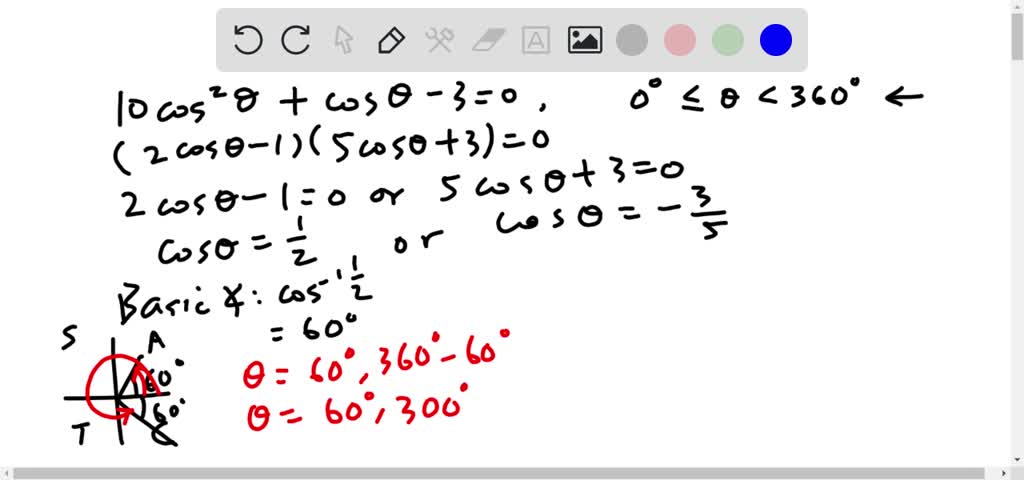 10cos²θ + cosθ - 3 = 0, 0° ≤ θ < 360° ←
(2cosθ-1)(5cosθ+3)=0
2cosθ-1=0 or 5cosθ+3=0
cosθ = 1/2 or cosθ = -3/5
Basic ∡: cos⁻¹ 1/2
= 60°
S A
60°
60°
T C
θ = 60°, 360°-60°
θ = 60°, 300°